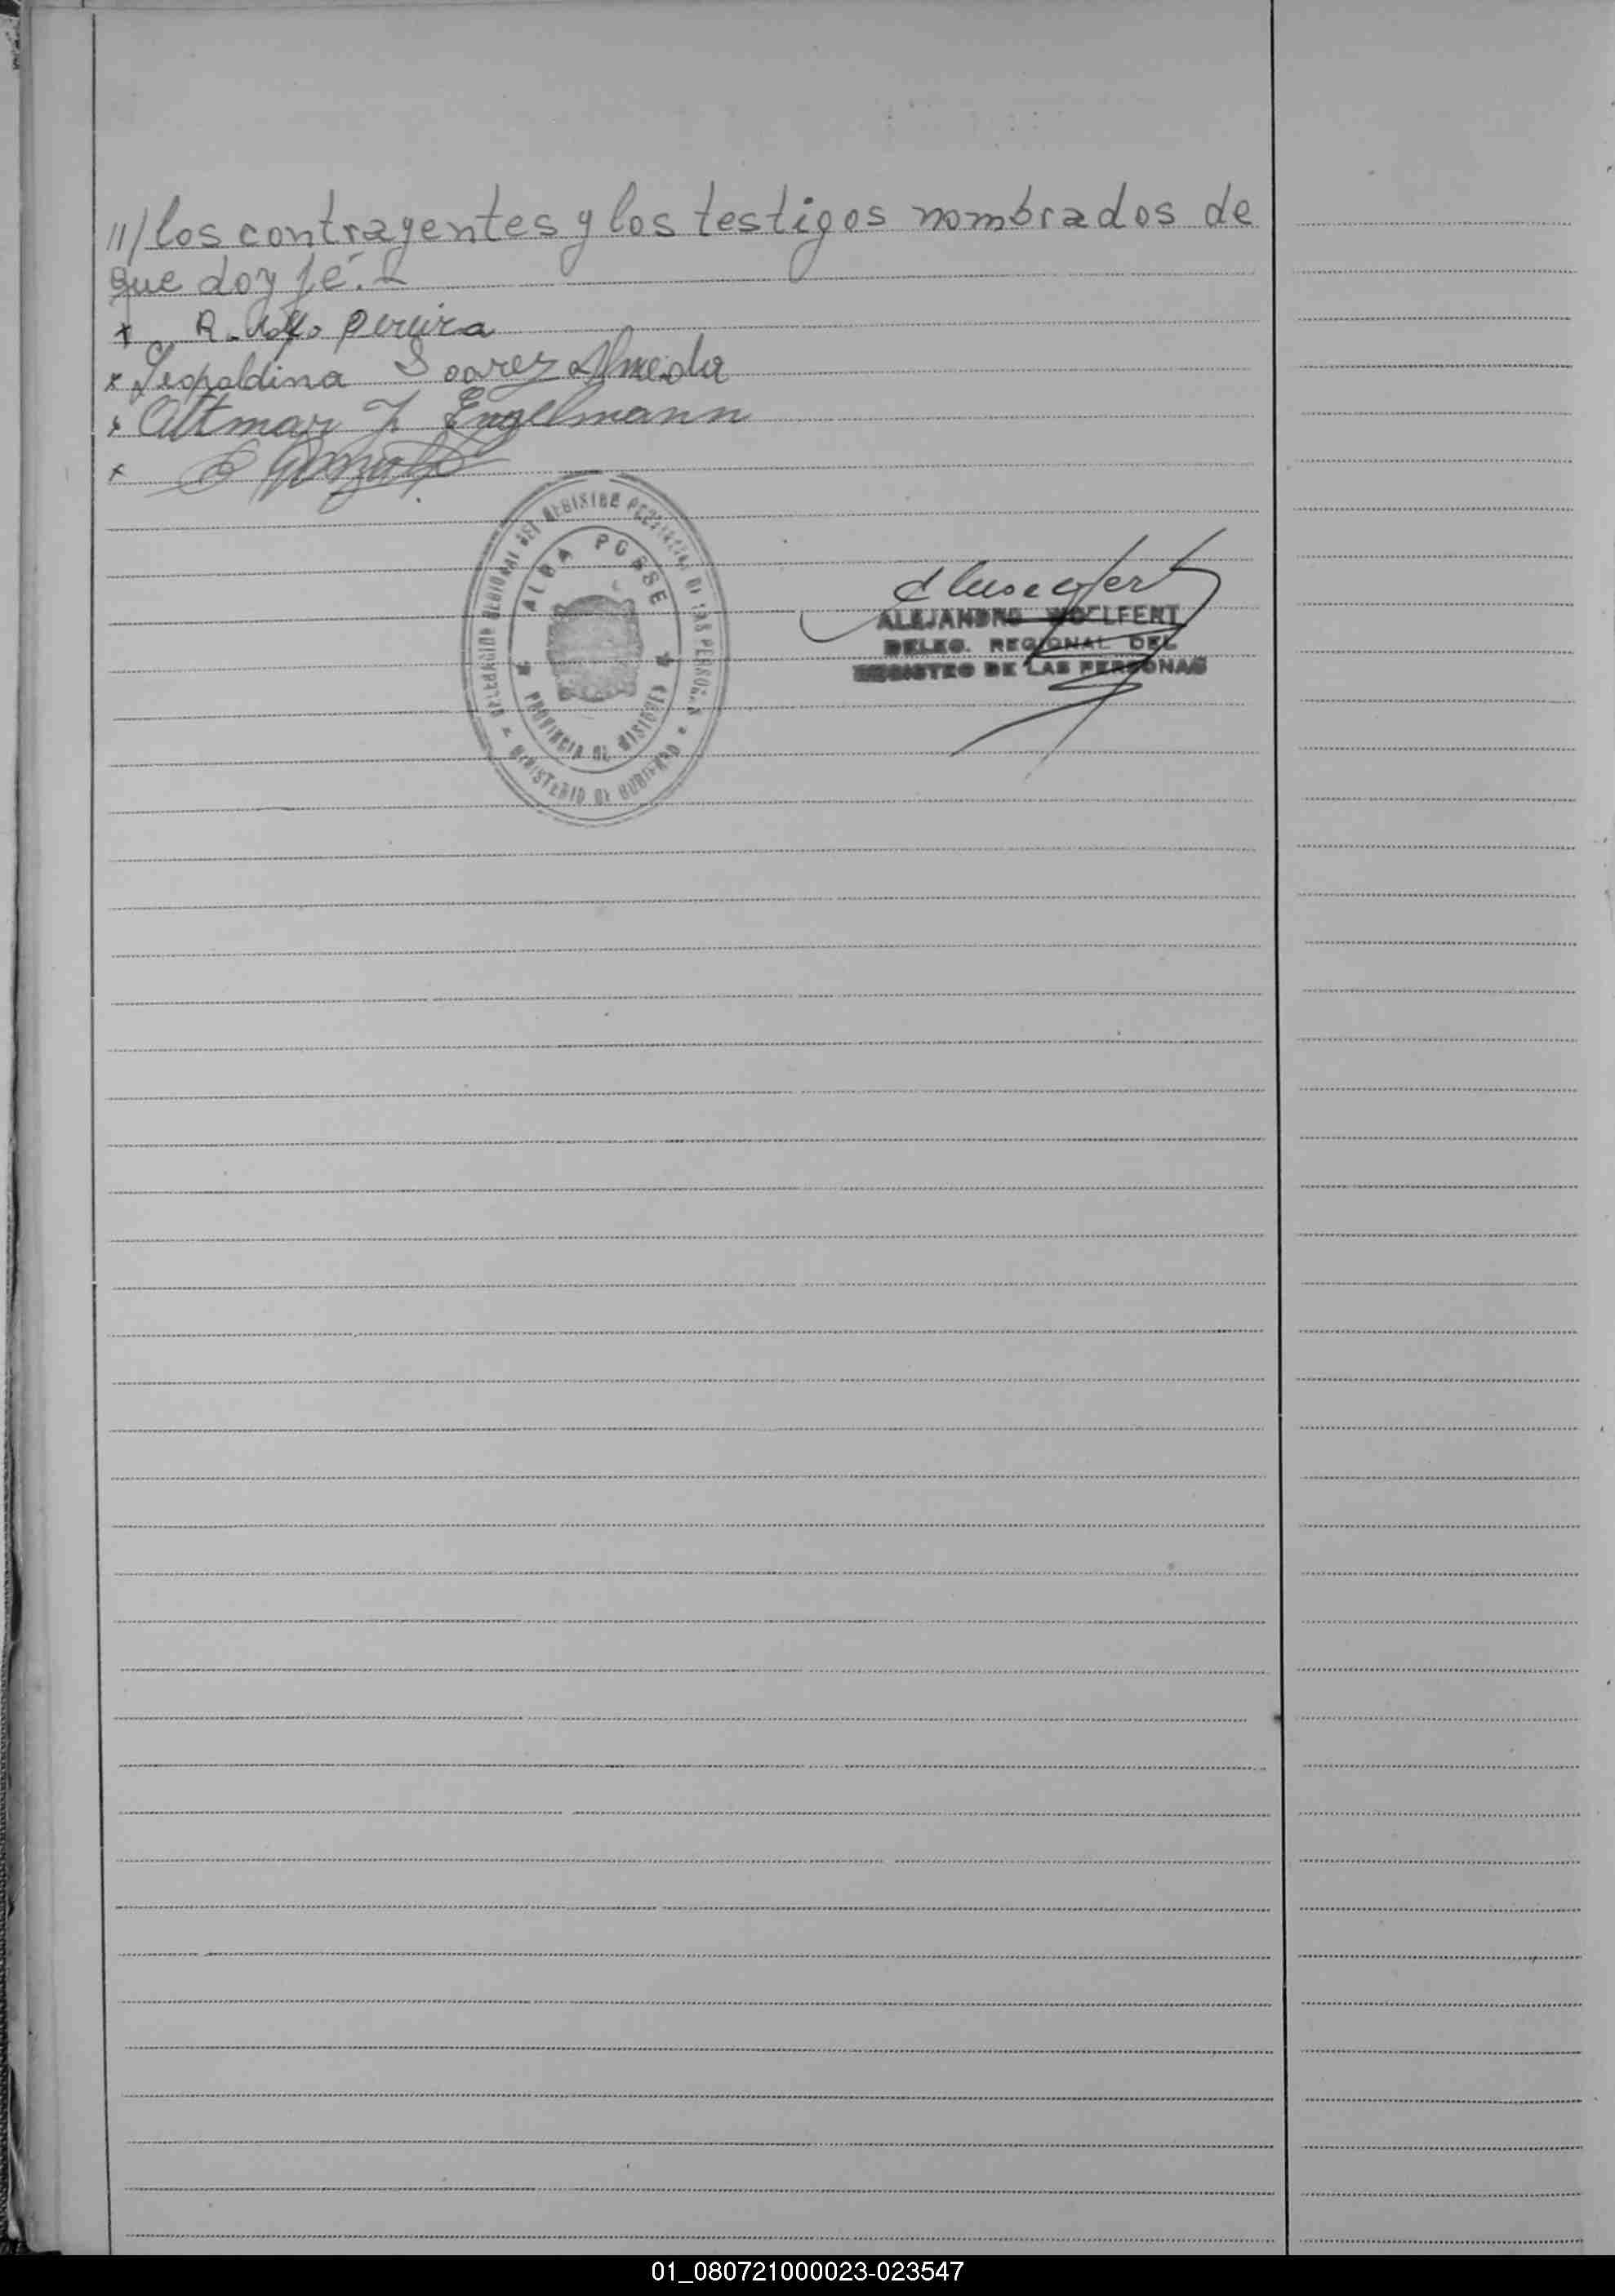 11/ los contrayentes y los testigos nombrados de
que doy fé.-
x Pereira
x Leopoldina Soarez Almeida
x Ottmar J. Engelmann
x
DELEGACION REGIONAL DEL REGISTRO PROVINCIAL DE LAS PERSONAS
ALBA POSSE
PROVINCIA DE MISIONES
MINISTERIO DE GOBIERNO
ALEJANDRO WOELFERT
DELEG. REGIONAL DEL
REGISTRO DE LAS PERSONAS
01_080721000023-023547